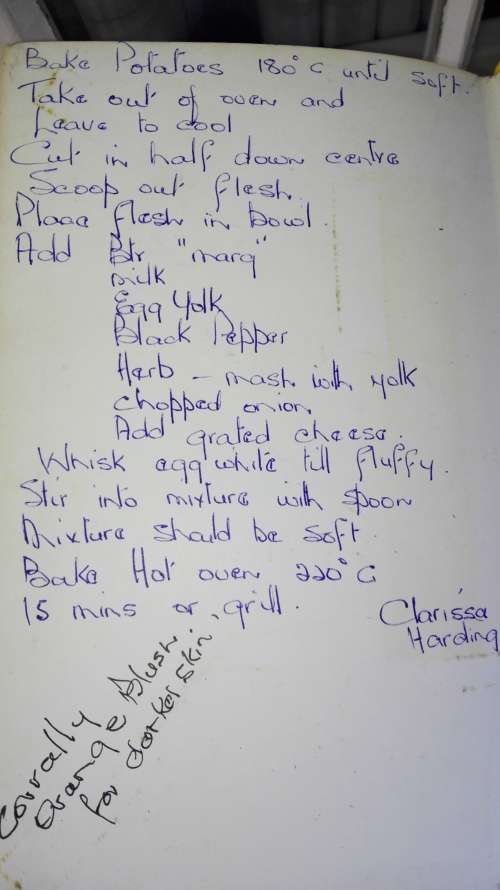 Bake Potatoes 180°C until soft.
Take out of oven and
Leave to cool
Cut in half down centre
Scoop out flesh.
Place flesh in bowl.
Add Btr "marg"
milk
Egg Yolk
Black Pepper
Herb - mash with yolk
chopped onion
Add grated cheese.
Whisk egg white till fluffy.
Stir into mixture with spoon
Mixture should be soft
Bake Hot oven 220°C
15 mins or grill.
Clarissa
Harding
Corrally
Orange Blush
for darker skin.